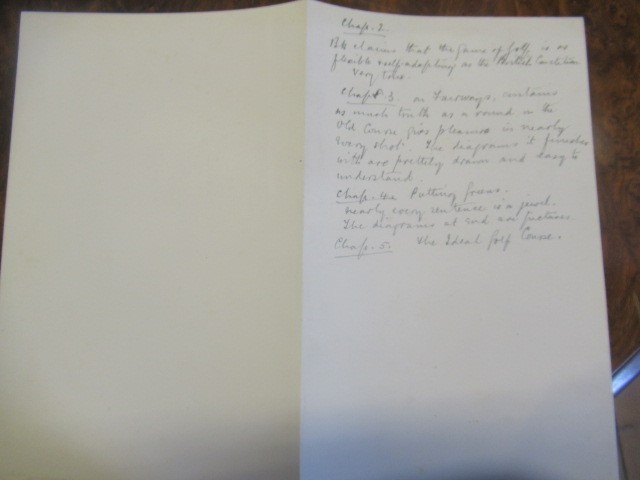 Chap. 2.
He claims that the game of Golf is as
flexible & self adapting as the British Constitution
Very true.
Chap 3. on Fairways, contains
as much truth as a round on the
Old Course gives pleasure in nearly
every shot. The diagrams it finishes
with are prettily drawn and easy to
understand.
Chap. Putting Greens.
nearly every sentence is a jewel.
The diagrams at end are
Chap. 5. The Ideal Golf Course.